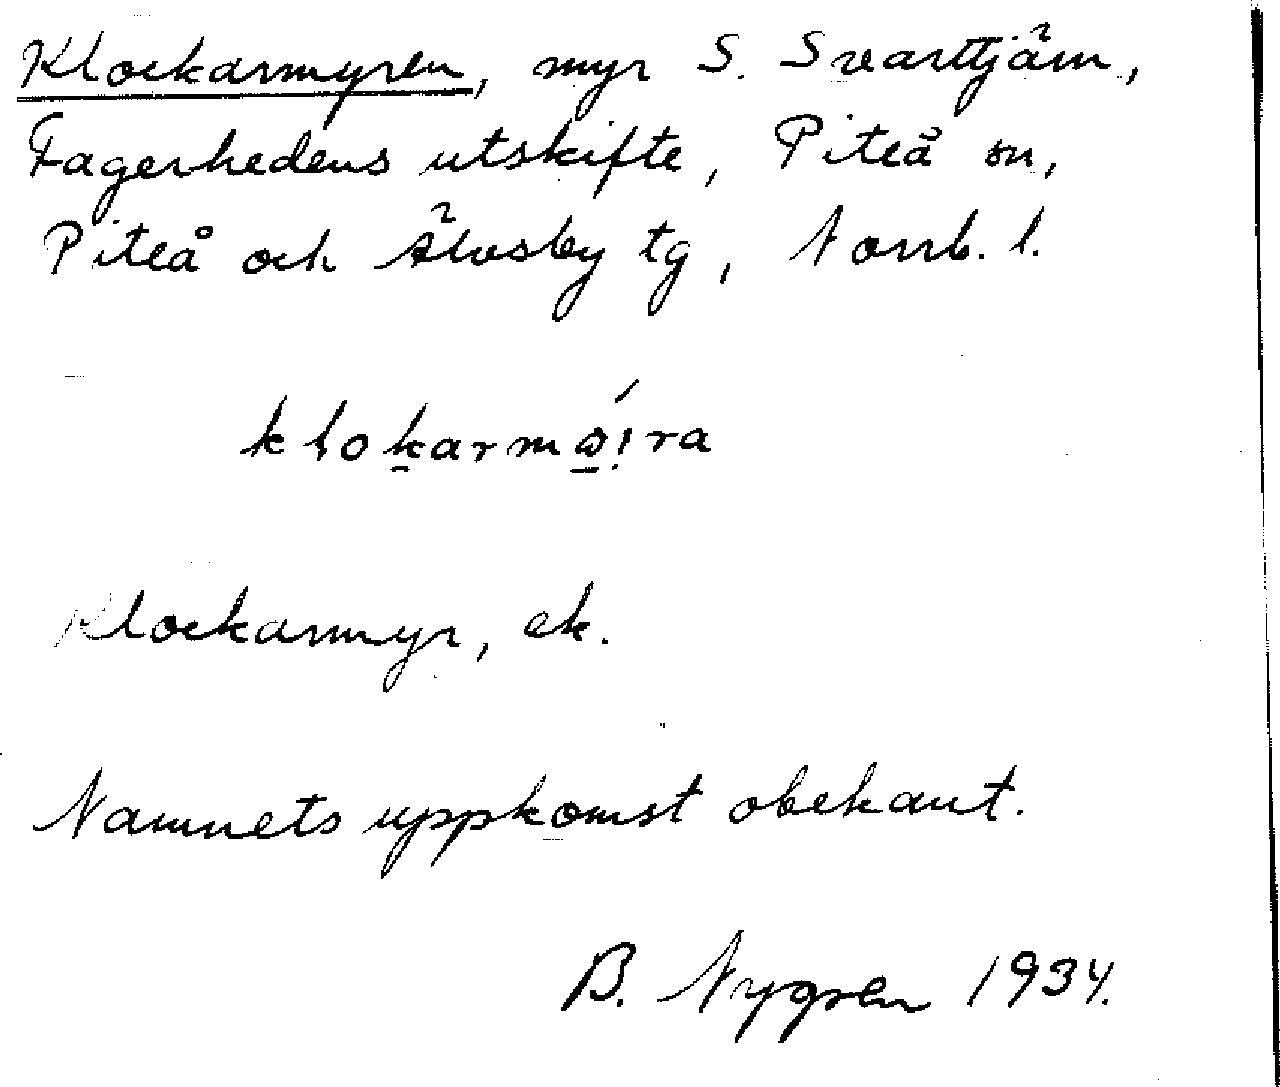 Klockarmyren, myr S. Svarttjärn,
Fagerhedens utskifte, Piteå sn,
Piteå och Älvsby tg, Norrb. l.
klokarmǿ̱i̩ra
Klockarmyr, ek.
Namnets uppkomst obekant.
B. Nygren 1934.